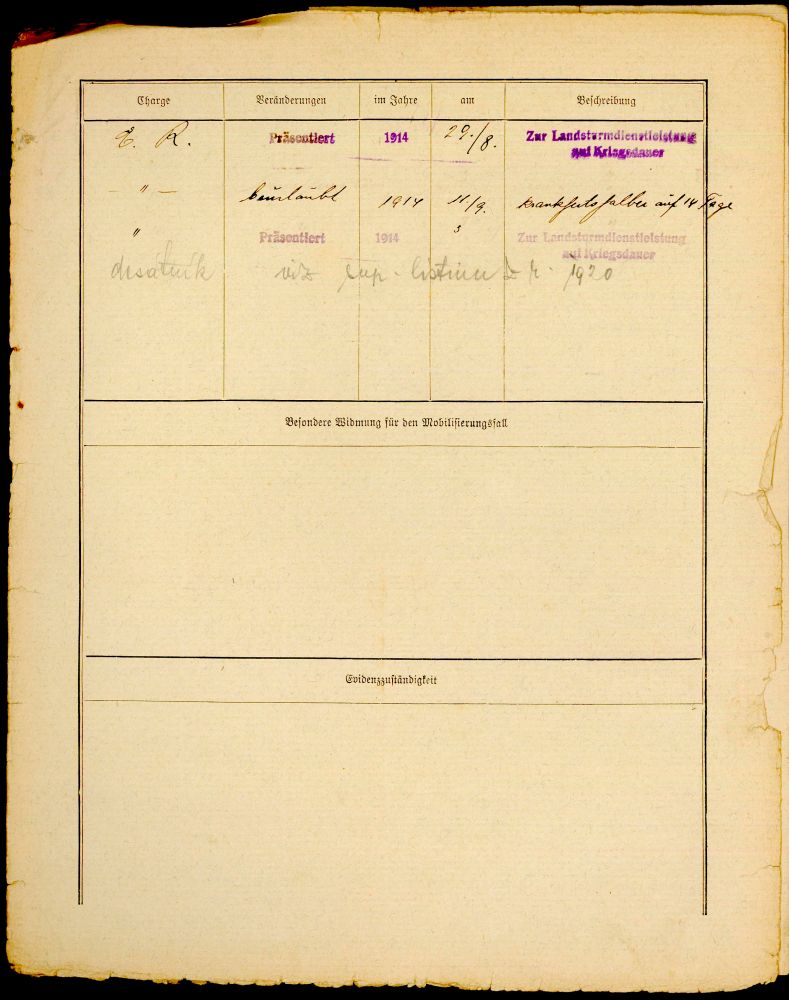 Charge Veränderungen im Jahre am Beschreibung
E. R. Präsentiert 1914 29./8. Zur Landsturmdienstleistung
auf Kriegsdauer
— " — beurlaubt 1914 11/9. krankheitshalber auf 14 Tage
" Präsentiert 1914 Zur Landsturmdienstleistung
auf Kriegsdauer
desátník viz 1920
Besondere Widmung für den Mobilisierungsfall
Evidenzzuständigkeit